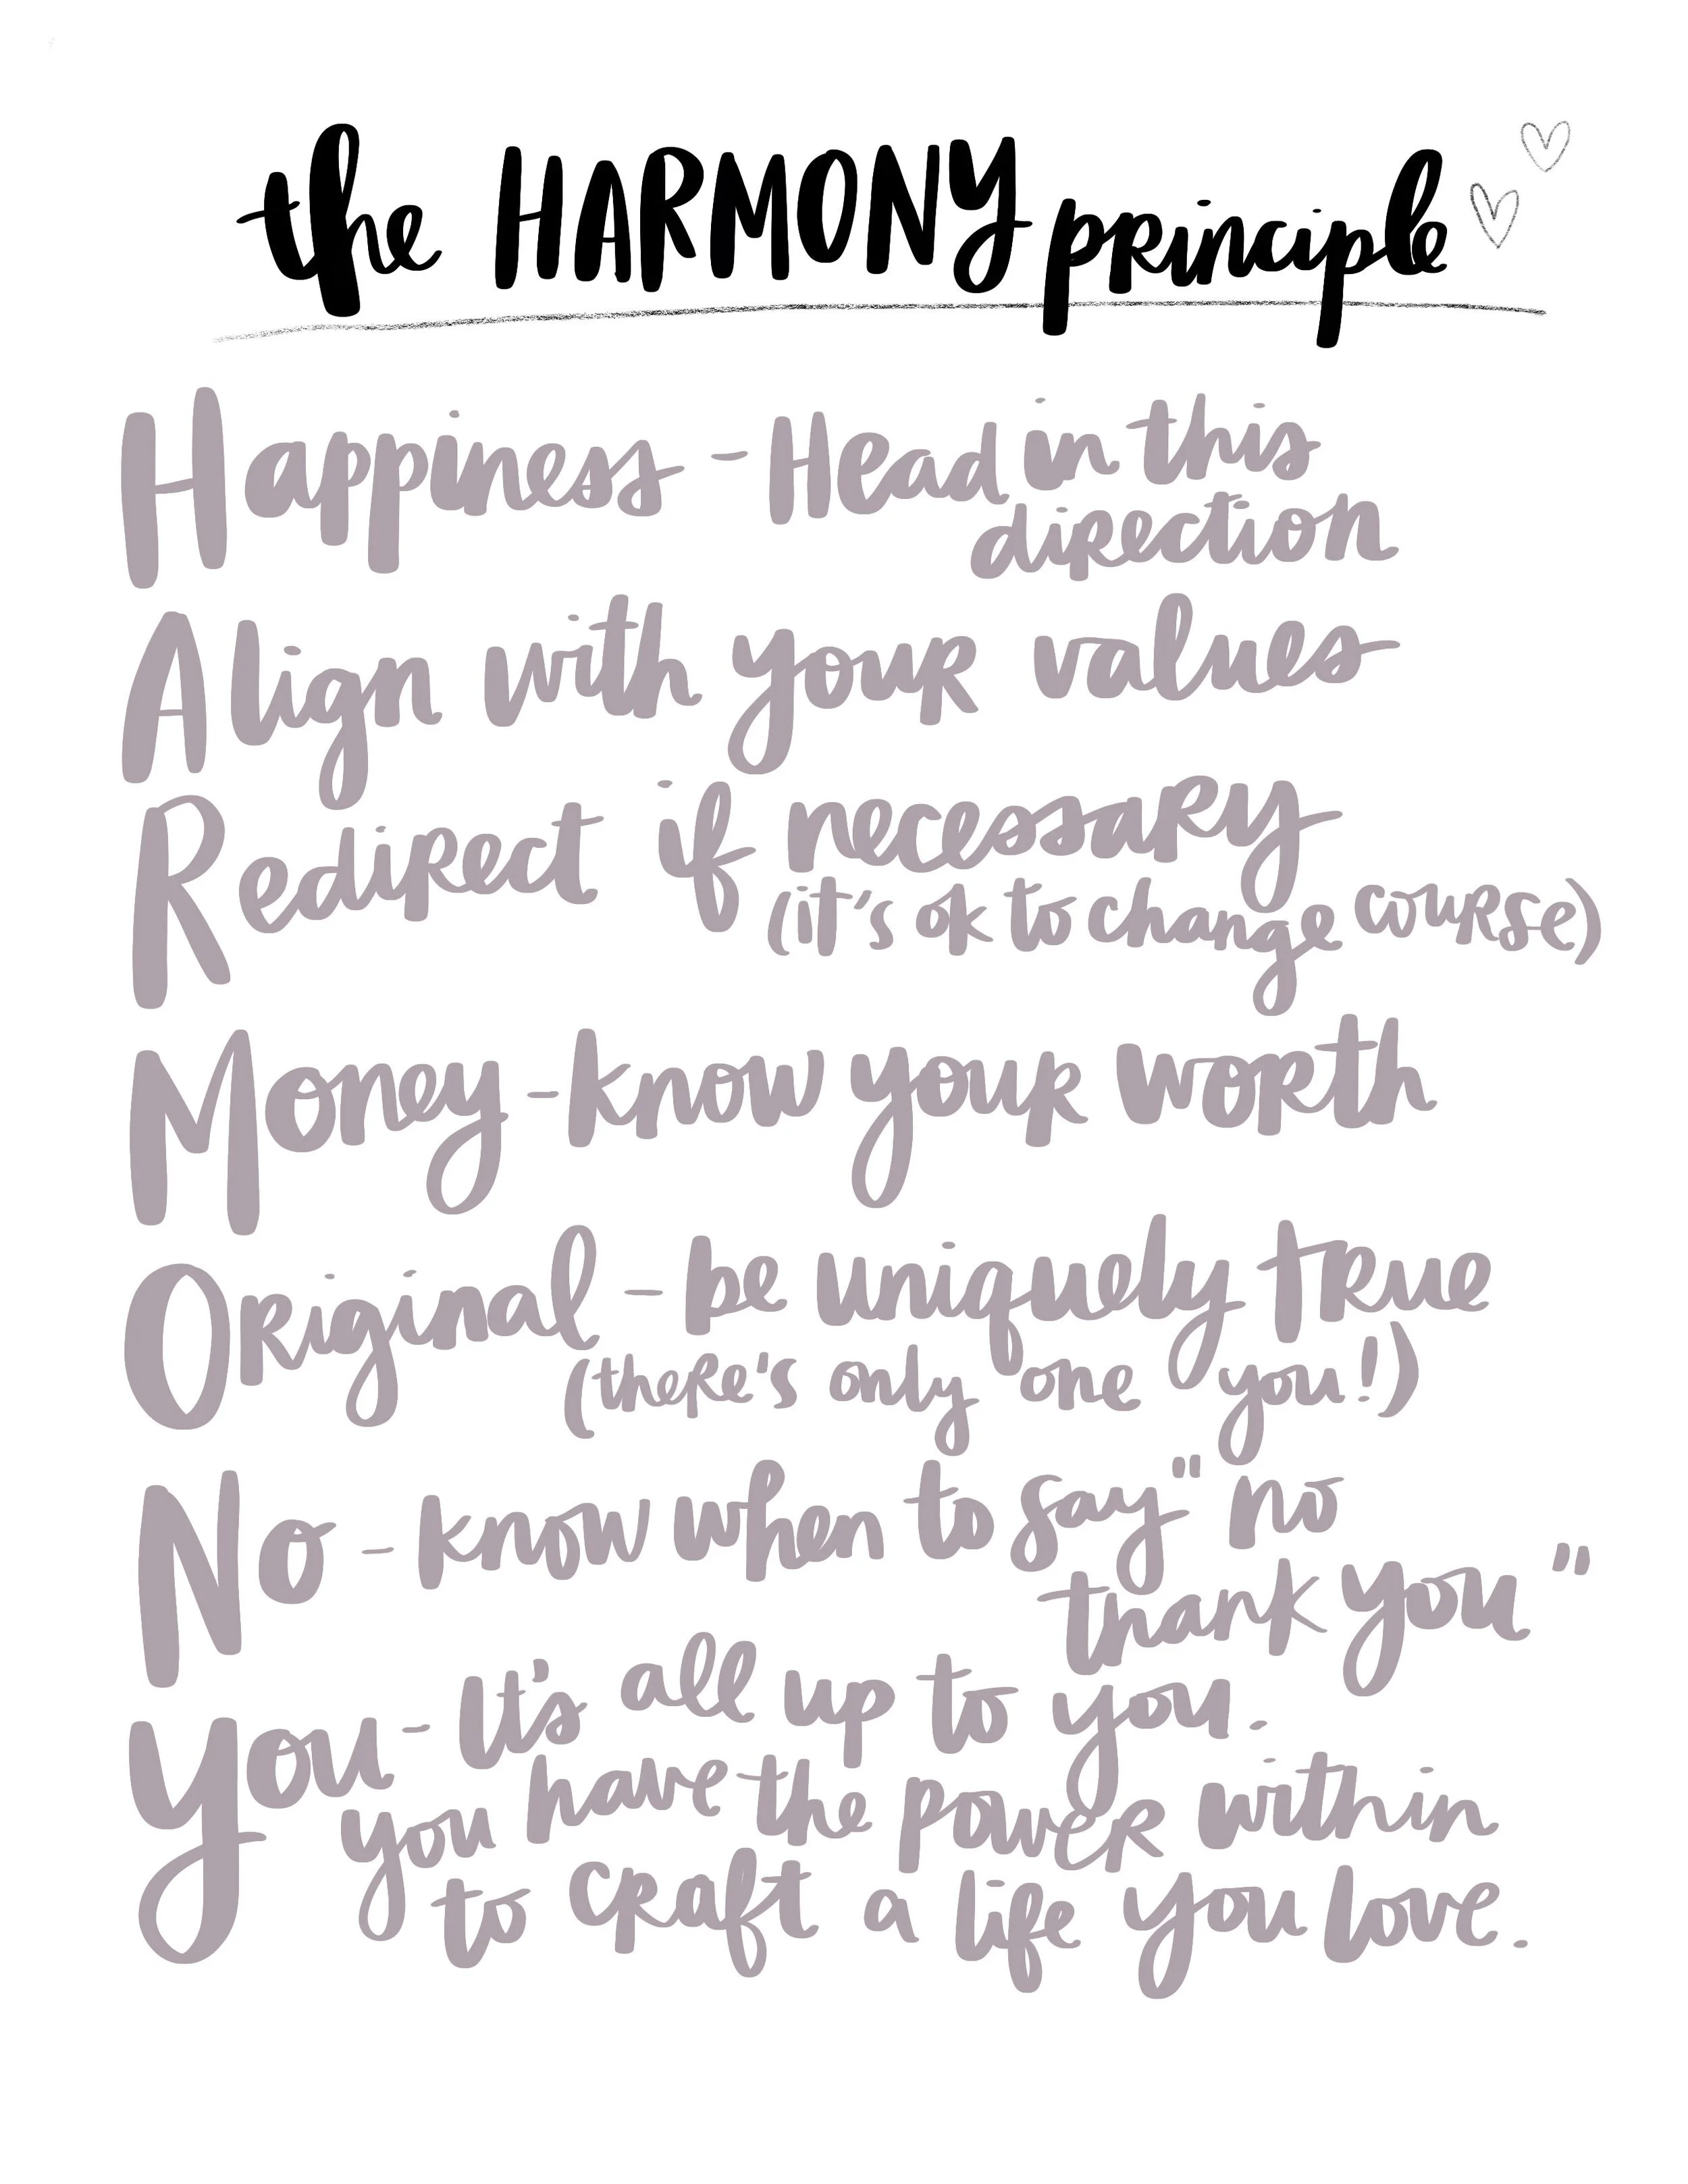 the HARMONY principle
Happiness - Head in this
direction
Align with your values
Redirect if necessary
(it's ok to change course)
Money - know your worth
Original - be uniquely true
(there's only one you!)
No - know when to say "no
thank you"
You - It's all up to you.
you have the power within
to craft a life you love.